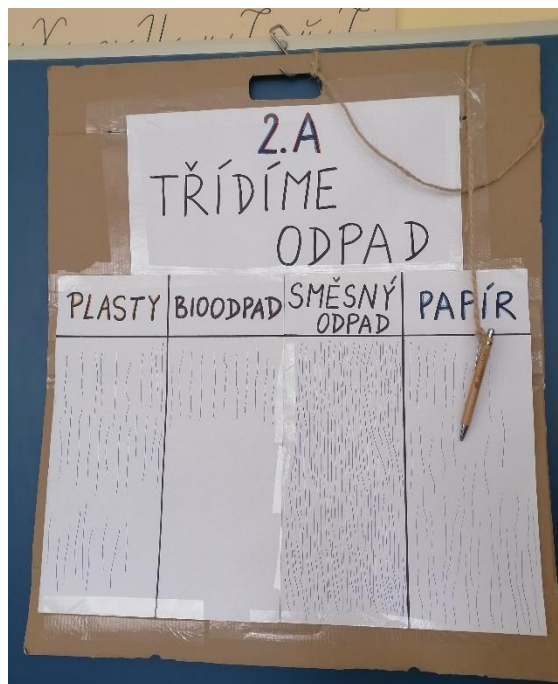 2.A
TŘÍDÍME
ODPAD
PLASTY BIOODPAD SMĚSNÝ ODPAD PAPÍR